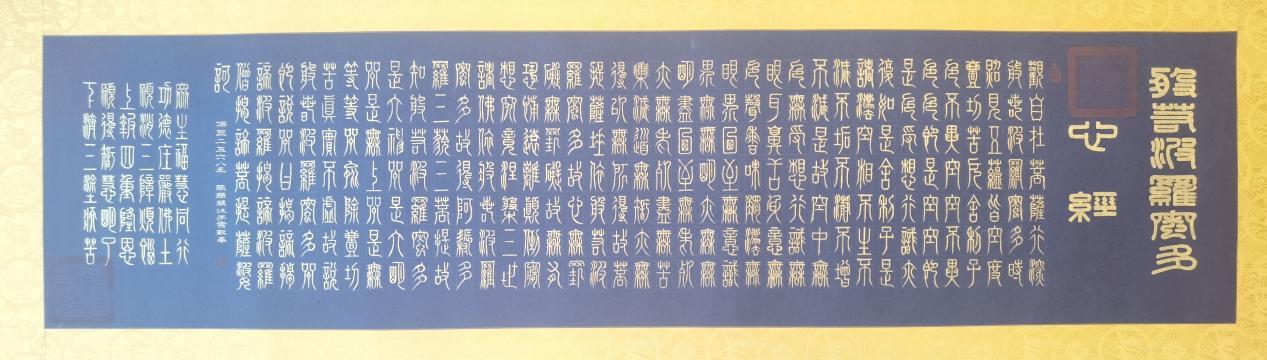 般若波羅蜜多
心經
觀自在菩薩行深
般若波羅蜜多時
照見五蘊皆空度
壹切苦厄舍利子
色不異空空不異
色色即是空空即
是色受想行識亦
復如是舍利子是
諸法空相不生不
滅不垢不淨不增
不減是故空中無
色無受想行識無
眼耳鼻舌身意無
色聲香味觸法無
眼界乃至無意識
界無無明亦無無
明盡乃至無老死
亦無老死盡無苦
集滅道無智亦無
得以無所得故菩
提薩埵依般若波
羅蜜多故心無罣
礙無罣礙故無有
恐怖遠離顛倒夢
想究竟涅槃三世
諸佛依般若波羅
蜜多故得阿耨多
羅三藐三菩提故
知般若波羅蜜多
是大神咒是大明
咒是無上咒是無
等等咒能除壹切
苦真實不虛故說
般若波羅蜜多咒
即說咒曰揭諦揭
諦波羅揭諦波羅
僧揭諦菩提薩婆
訶
佛曆二五六八年
眾生福慧同行
功德莊嚴佛土
願消三障煩惱
上報四重隆恩
願得智慧明了
下濟三塗眾苦